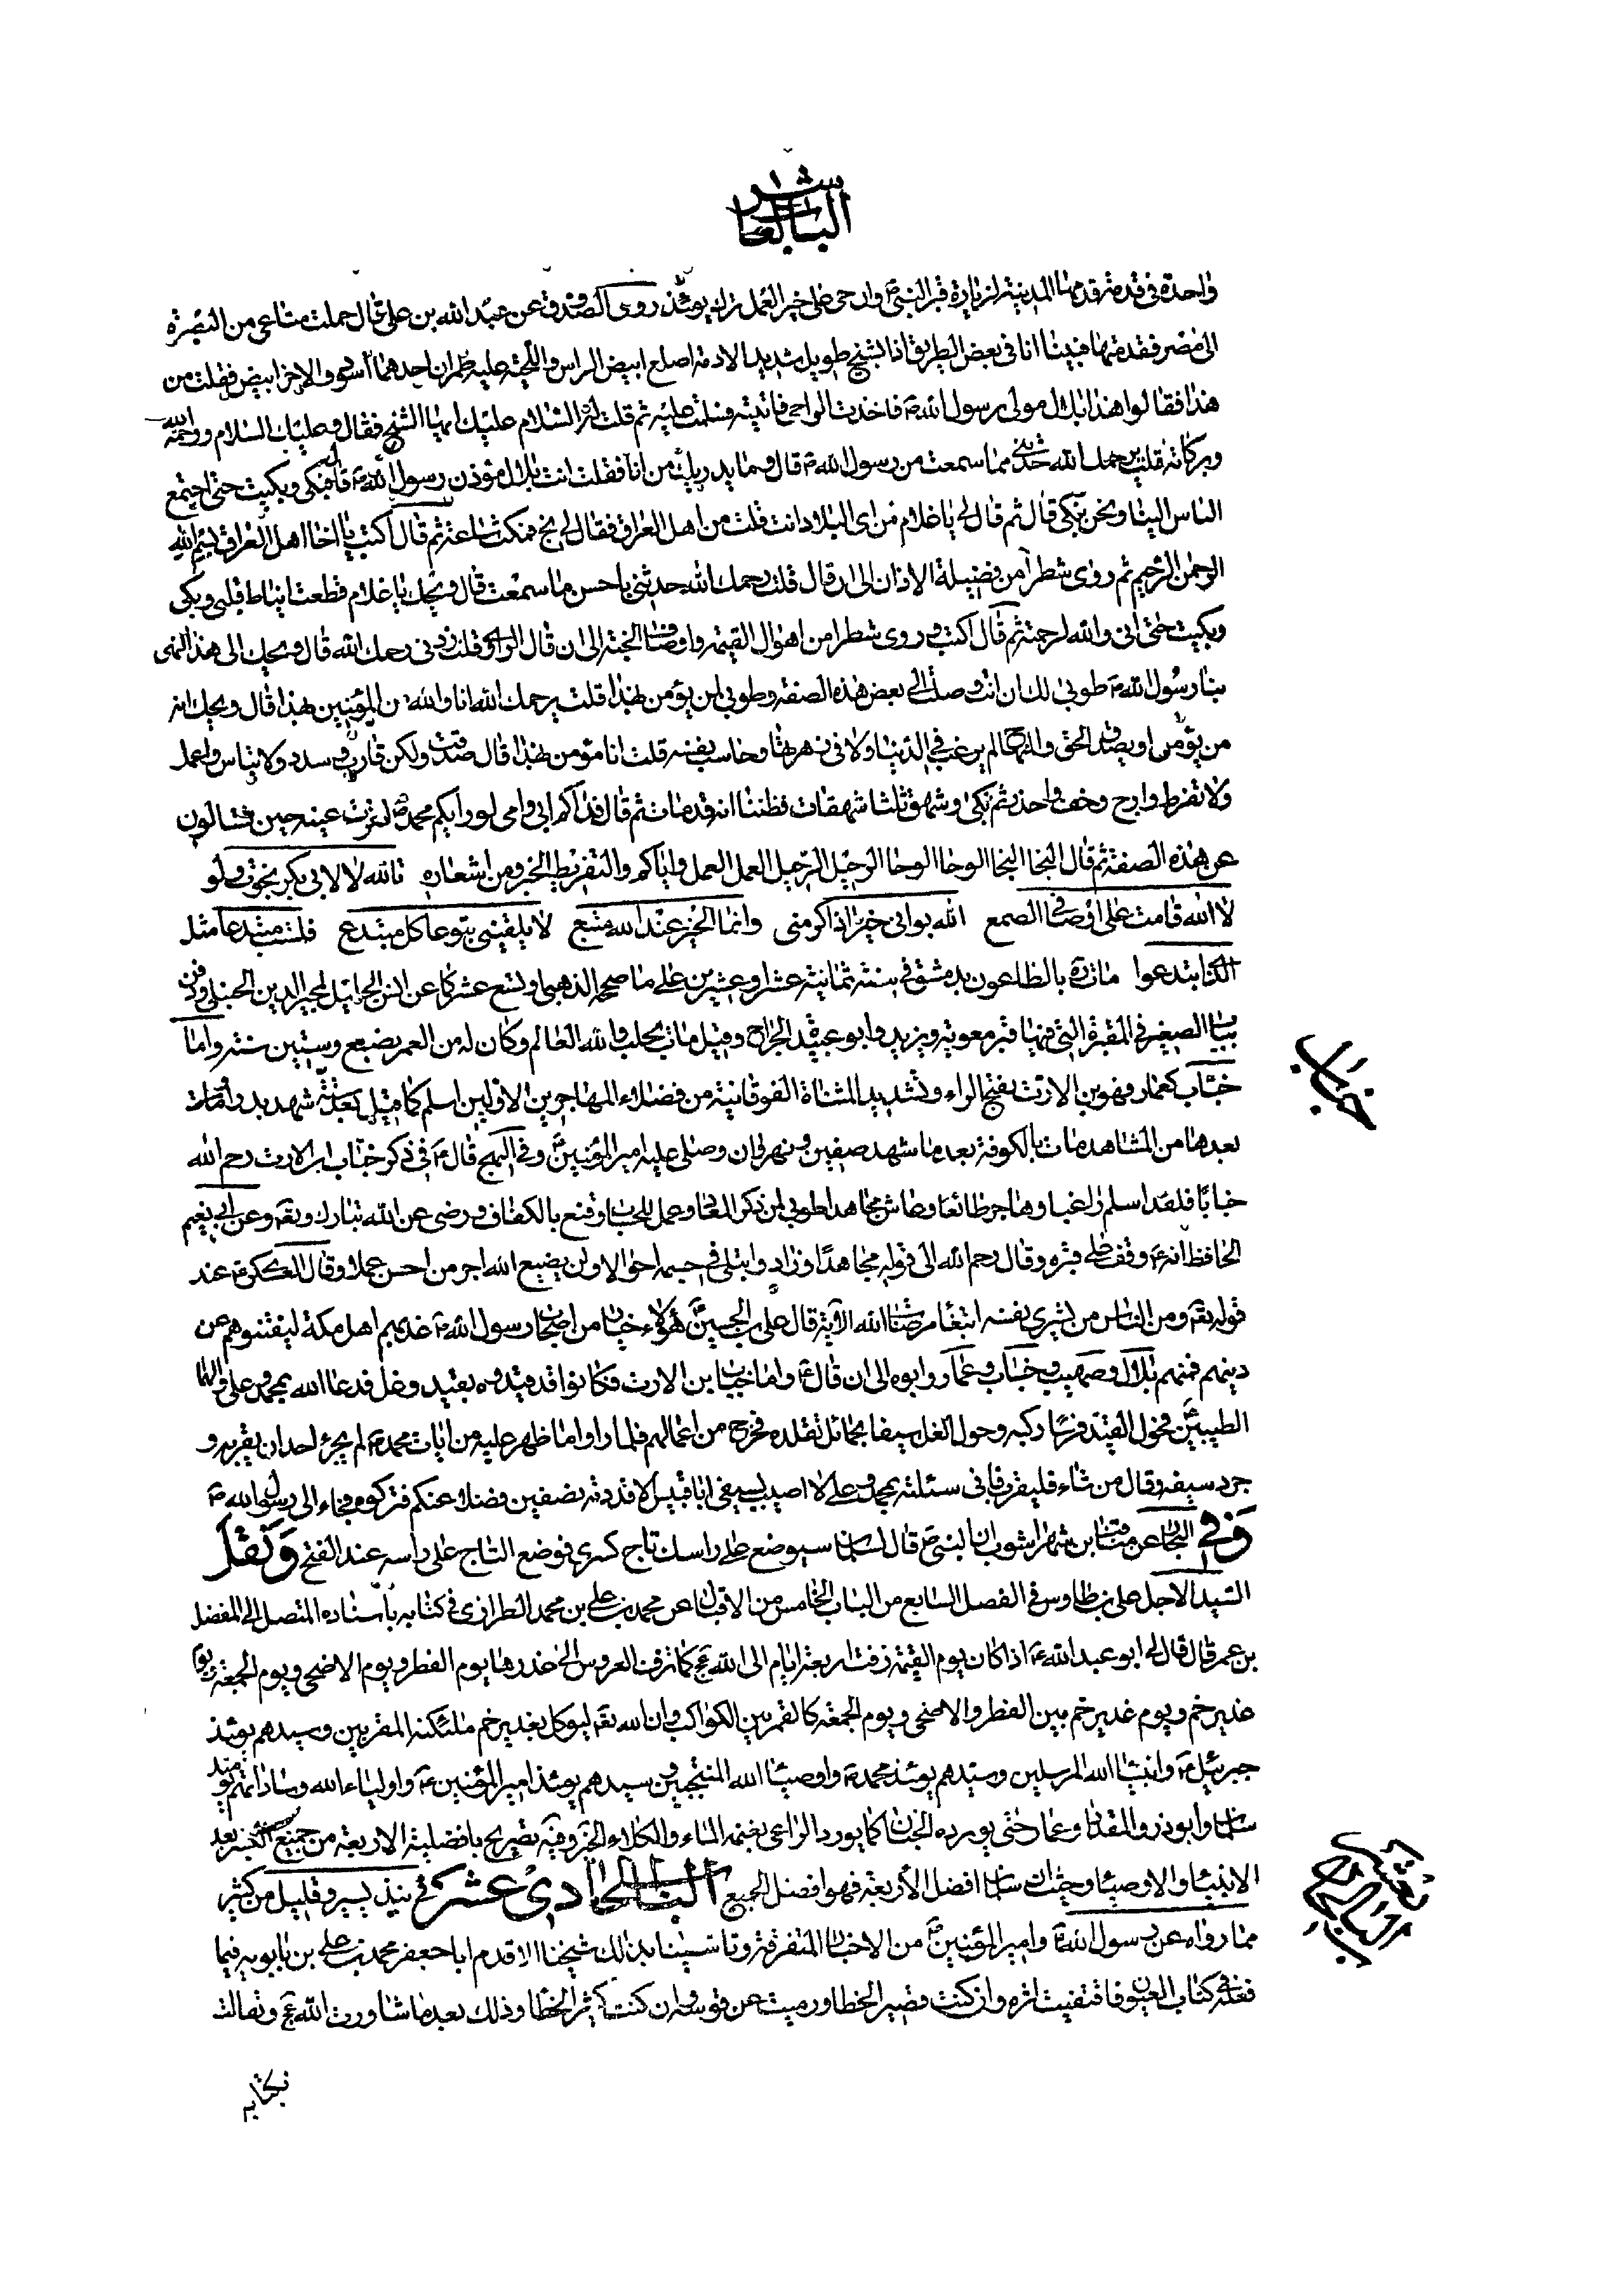 الباب العاشر
واحدة في قدمة قدمها المدينة لزيارة قبر النبي ص وان حي على خير العمل ترك يومئذ روى الصدوق عن عبد الله بن علي قال حملت متاعي من البصرة
الى مصر فقدمتها فبينا انا في بعض الطريق اذا بشيخ طويل شديد الادمة اصلع ابيض الراس واللحية عليه طمران احدهما اسود والاخر ابيض فقلت من
هذا فقالوا هذا بلال مولى رسول الله ص فاخذت الواحي فاتيته فسلمت عليه ثم قلت له السلام عليك ايها الشيخ فقال وعليك السلام ورحمة الله
وبركاته قلت يرحمك الله حدثني مما سمعت من رسول الله ص قال وما يدريك من انا فقلت انت بلال مؤذن رسول الله ص قال فبكى وبكيت حتى اجتمع
الناس الينا ونحن نبكي قال ثم قال لي يا غلام من اي البلاد انت قلت من اهل العراق فقال لي بخ بخ فمكث ساعة ثم قال اكتب يا اخا اهل العراق بسم الله
الرحمن الرحيم ثم روى شطرا من فضيلة الاذان الى ان قال قلت رحمك الله حدثني باحسن ما سمعت قال ويحك يا غلام قطعت انياط قلبي وبكى
وبكيت حتى اني والله لرحمته ثم قال اكتب وروى شطرا من اهوال القيمة واوصاف الجنة الى ان قال الراوي قلت زدني رحمك الله قال ويحك الى هذا انتهى
بنا رسول الله ص طوبى لك ان انت وصلت الى بعض هذه الصفة وطوبى لمن يؤمن بهذا قلت يرحمك الله انا والله من المؤمنين بهذا قال ويحك انه
من يؤمن او يصدق الحق والمنهاج لم يرغب في الدنيا ولا في زهرتها وحاسب نفسه قلت انا مؤمن بهذا قال صدقت ولكن قارب وسدد ولا تياس واعمل
ولا تفرط وارج وخف واحذر ثم بكى وشهق ثلث شهقات فظننا انه قد مات ثم قال فداكم ابي وامي لو رايكم محمد ص لقرت عينه حين تسالون
عن هذه الصفة ثم قال النجا النجا الوحا الوحا الرحيل الرحيل العمل العمل واياكم والتفريط الخبر ومن اشعاره تالله لا لابي بكر نجوت ولو
لا الله قامت على اوصالي الضبع الله بواني خيرا اذ اكرمني وانما الخير عند الله متبع لا يلقيني تبوعا كل مبتدع فلست مبتدعا مثل
الذي ابتدعوا مات ره بالطاعون بدمشق في سنة ثمانية عشر او عشرين على ما صححه الذهبي او تسع عشر كما عن الانس الجليل لمجير الدين الحنبلي ودفن
بباب الصغير في المقبرة التي فيها قبر معوية ويزيد وابو عبيدة الجراح وقيل مات بحلب والله العالم وكان له من العمر بضع وستين سنة واما
خباب كعمار فهو بن الارت بفتح الراء وتشديد المثناة الفوقانية من فضلاء المهاجرين الاولين اسلم كما قيل بعد ستة شهد بدرا وما
بعدها من المشاهد مات بالكوفة بعد ما شهد صفين ونهروان وصلى عليه امير المؤمنين ع وفي النهج قال ع في ذكر خباب بن الارت رحم الله
خبابا فلقد اسلم راغبا وهاجر طائعا وعاش مجاهدا طوبى لمن ذكر المعاد وعمل للحساب وقنع بالكفاف ورضي عن الله تبارك وتعه وعن ابي نعيم
الحافظ انه ع وقف على قبره وقال رحم الله الى قوله مجاهدا وزاد وابتلى في جسمه احوالا ولن يضيع الله اجر من احسن عملا وقال العسكري ع عند
قوله تعه ومن الناس من يشري نفسه ابتغاء مرضات الله الآية قال علي بن الحسين ع هؤلاء خيار من اصحاب رسول الله ص عذبهم اهل مكة ليفتنوهم عن
دينهم فمنهم بلال وصهيب وخباب وعمار وابوه الى ان قال ع واما خباب بن الارت فكانوا قد قيدوه بقيد وغل فدعا الله بمحمد وعلي والهما
الطيبين ع فحول القيد فرسا ركبه وحول الغل سيفا بحمائل تقلده فخرج من اعمالهم فلما راوا ما ظهر عليه من ايات محمد ص لم يجرء احد ان يقربه و
جرد سيفه وقال من شاء فليقرب فاني سئلته بمحمد وعلي ع ان لا اصيب بسيفي ابا قبيس الا قددته نصفين فضلا عنكم فتركوه فجاء الى رسول الله ص
وفي البحار عن مناقب ابن شهراشوب ان النبي ص قال لسلمان سيوضع على راسك تاج كسرى فوضع التاج على راسه عند الفتح ونقل
السيد الاجل علي بن طاوس في الفصل السابع من الباب الخامس من الاقبال عن محمد بن علي بن محمد الطرازي في كتابه باسناده المتصل الى المفضل
بن عمر قال قال لي ابو عبد الله ع اذا كان يوم القيمة زفت اربعة ايام الى الله عج كما تزف العروس الى خدرها يوم الفطر ويوم الاضحى ويوم الجمعة ويوم
غدير خم ويوم غدير خم بين الفطر والاضحى ويوم الجمعة كالقمر بين الكواكب وان الله تعه ليوكل بغدير خم ملئكته المقربين وسيدهم يومئذ
جبرئيل ع وانبياء الله المرسلين وسيدهم يومئذ محمد ص واوصياء الله المنتجبين وسيدهم يومئذ امير المؤمنين ع واولياء الله وساداتهم يومئذ
سلمان وابو ذر والمقداد وعمار حتى يورده الجنان كما يورد الراعي بغنمه الماء والكلاء الخبر وفيه تصريح بافضلية الاربعة من جميع البشر بعد
الانبياء والاوصياء وحيث ان سلمان افضل الأربعة فهو افضل الجميع الباب الحادي عشر في نبذ يسير وقليل من كثير
مما رواه عن رسول الله ص وامير المؤمنين ع من الاخبار المتفرقة وتاسينا بذلك شيخنا الاقدم ابا جعفر محمد بن علي بن بابويه فيما
فعله في كتاب العيون فاقتفيت اثره وان كنت قصير الخطا ورميت عن قوسه وان كنت كثير الخطا وذلك بعد ما شاورت الله عج وتفالت
بكتابه
خباب